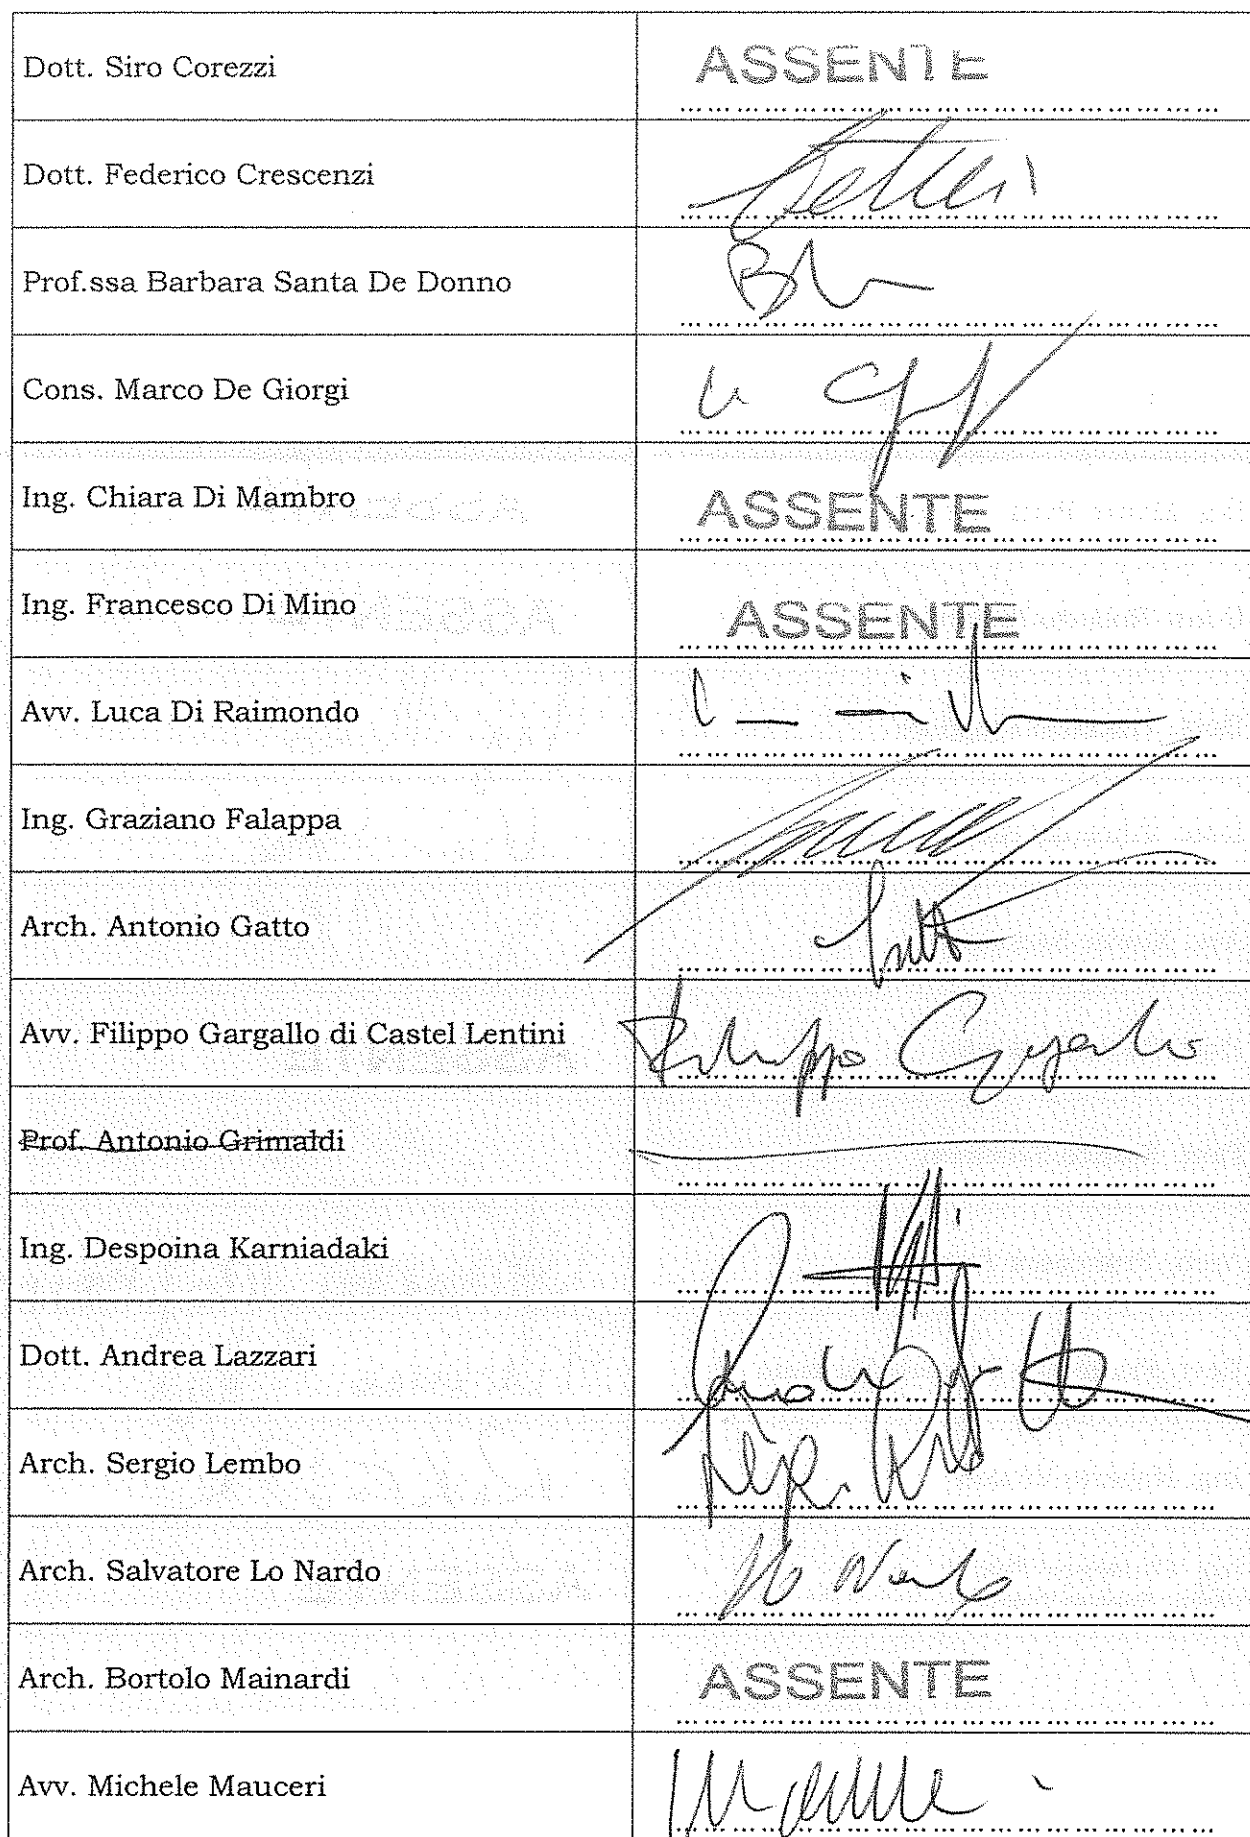 Dott. Siro Corezzi ASSENTE
Dott. Federico Crescenzi
Prof.ssa Barbara Santa De Donno
Cons. Marco De Giorgi
Ing. Chiara Di Mambro ASSENTE
Ing. Francesco Di Mino ASSENTE
Avv. Luca Di Raimondo
Ing. Graziano Falappa
Arch. Antonio Gatto
Avv. Filippo Gargallo di Castel Lentini Filippo Gargallo
Prof. Antonio Grimaldi
Ing. Despoina Karniadaki
Dott. Andrea Lazzari
Arch. Sergio Lembo
Arch. Salvatore Lo Nardo Lo Nardo
Arch. Bortolo Mainardi ASSENTE
Avv. Michele Mauceri